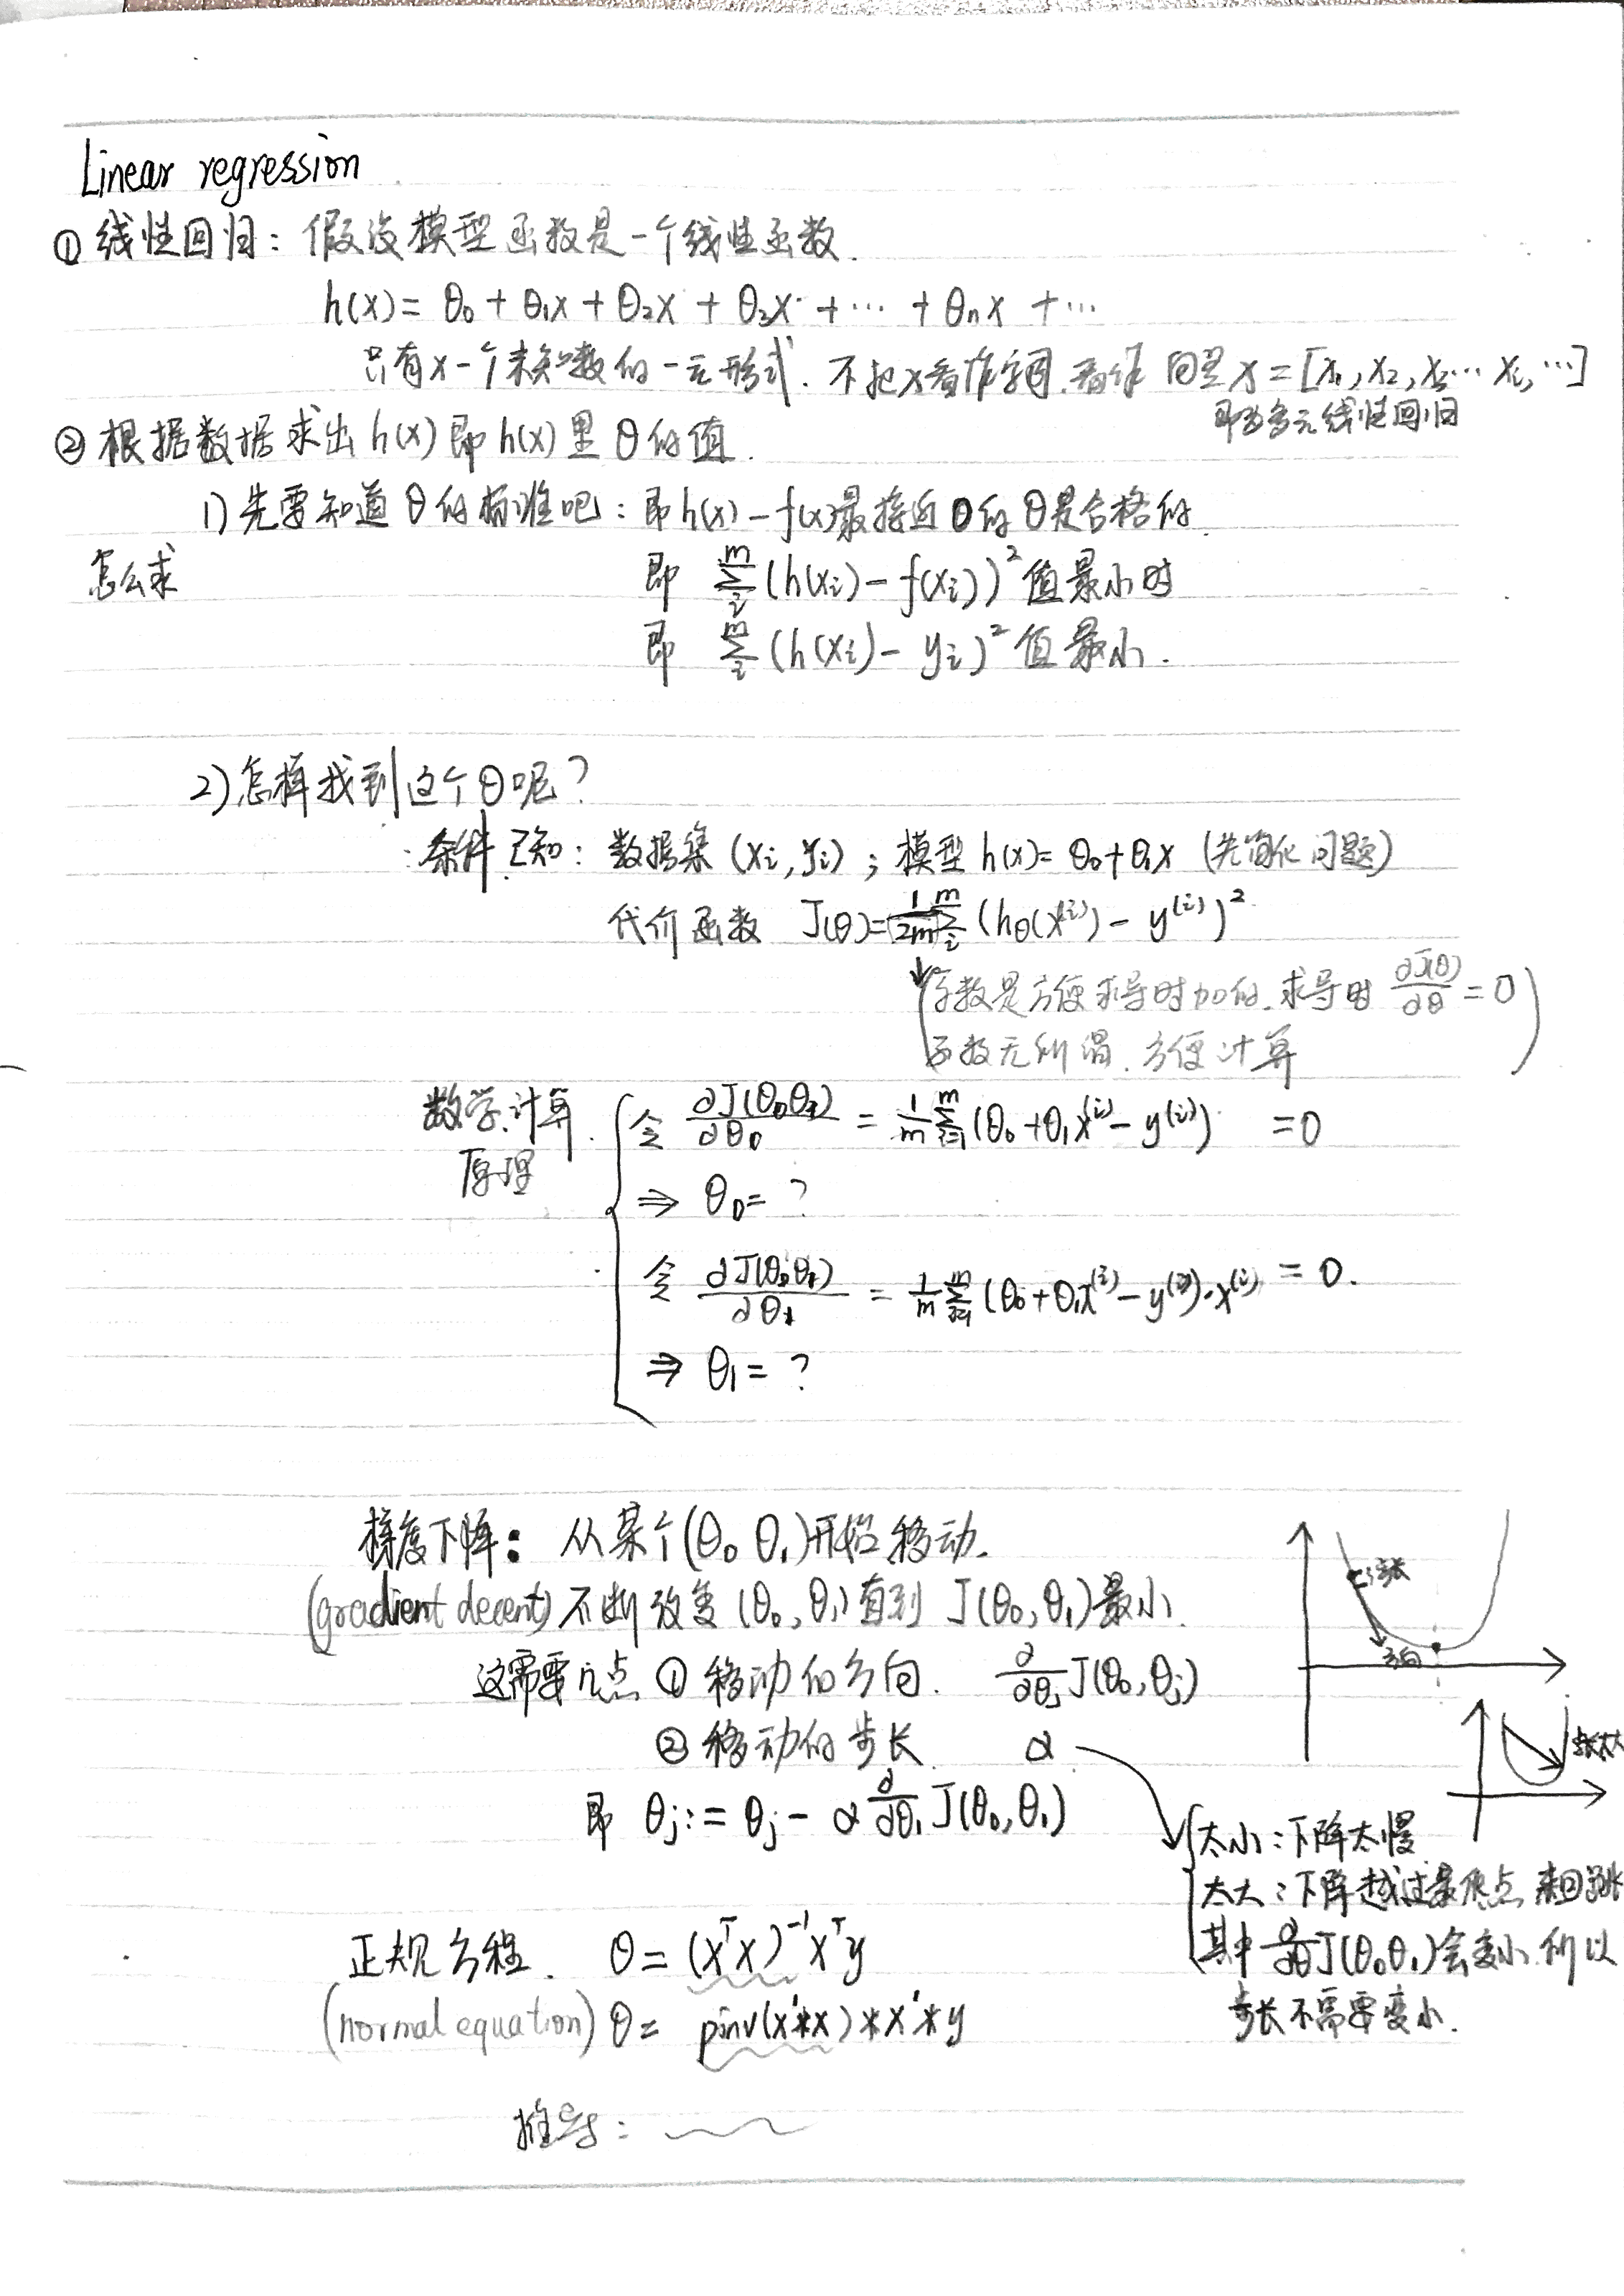 Linear regression
① 线性回归：假设模型函数是一个线性函数.
h(x) = θ₀ + θ₁x + θ₂x + θ₃x + ⋯ + θₙx + ⋯
只有x一个未知数的一元形式. 不把x看作字母. 看作 向量 x = [x₁, x₂, x₃⋯ xᵢ, ⋯]
即为多元线性回归
② 根据数据求出 h(x) 即 h(x) 里 θ 的值.
1) 先要知道 θ 的标准吧：即 h(x) − f(x) 最接近 0 的 θ 是合格的.
怎么求
即 ∑ᵢᵐ (h(xᵢ) − f(xᵢ))² 值最小时
即 ∑ᵢᵐ (h(xᵢ) − yᵢ)² 值最小.
2) 怎样找到这个θ呢？
条件已知：数据集 (xᵢ, yᵢ)；模型 h(x) = θ₀ + θ₁x (先简化问题)
代价函数 J(θ) = 1/2m ∑ᵢᵐ (hθ(x⁽ⁱ⁾) − y⁽ⁱ⁾)²
数是方便求导时加的. 求导时 ∂J(θ)/∂θ = 0
数无所谓. 方便计算
数学计算原理
令 ∂J(θ₀θ₁)/∂θ₀ = 1/m ∑ᵢ₌₁ᵐ (θ₀ + θ₁x⁽ⁱ⁾ − y⁽ⁱ⁾) = 0
⇒ θ₀ = ?
令 ∂J(θ₀θ₁)/∂θ₁ = 1/m ∑ᵢ₌₁ᵐ (θ₀ + θ₁x⁽ⁱ⁾ − y⁽ⁱ⁾)·x⁽ⁱ⁾ = 0.
⇒ θ₁ = ?
梯度下降：从某个(θ₀ θ₁)开始移动.
(gradient decent) 不断改变 (θ₀, θ₁) 直到 J(θ₀, θ₁) 最小.
步长
方向
这需要几点 ① 移动的方向. ∂/∂θⱼ J(θ₀, θⱼ)
② 移动的步长 α
步长太大
即 θⱼ := θⱼ − α ∂/∂θ₁ J(θ₀, θ₁)
太小：下降太慢
太大：下降越过最低点 来回跳
其中 ∂/∂θ J(θ₀θ₁) 会变小. 所以
步长不需要变小.
正规方程. θ = (xᵀx)⁻¹xᵀy
(normal equation) θ = pinv(x'*x)*x'*y
推导：